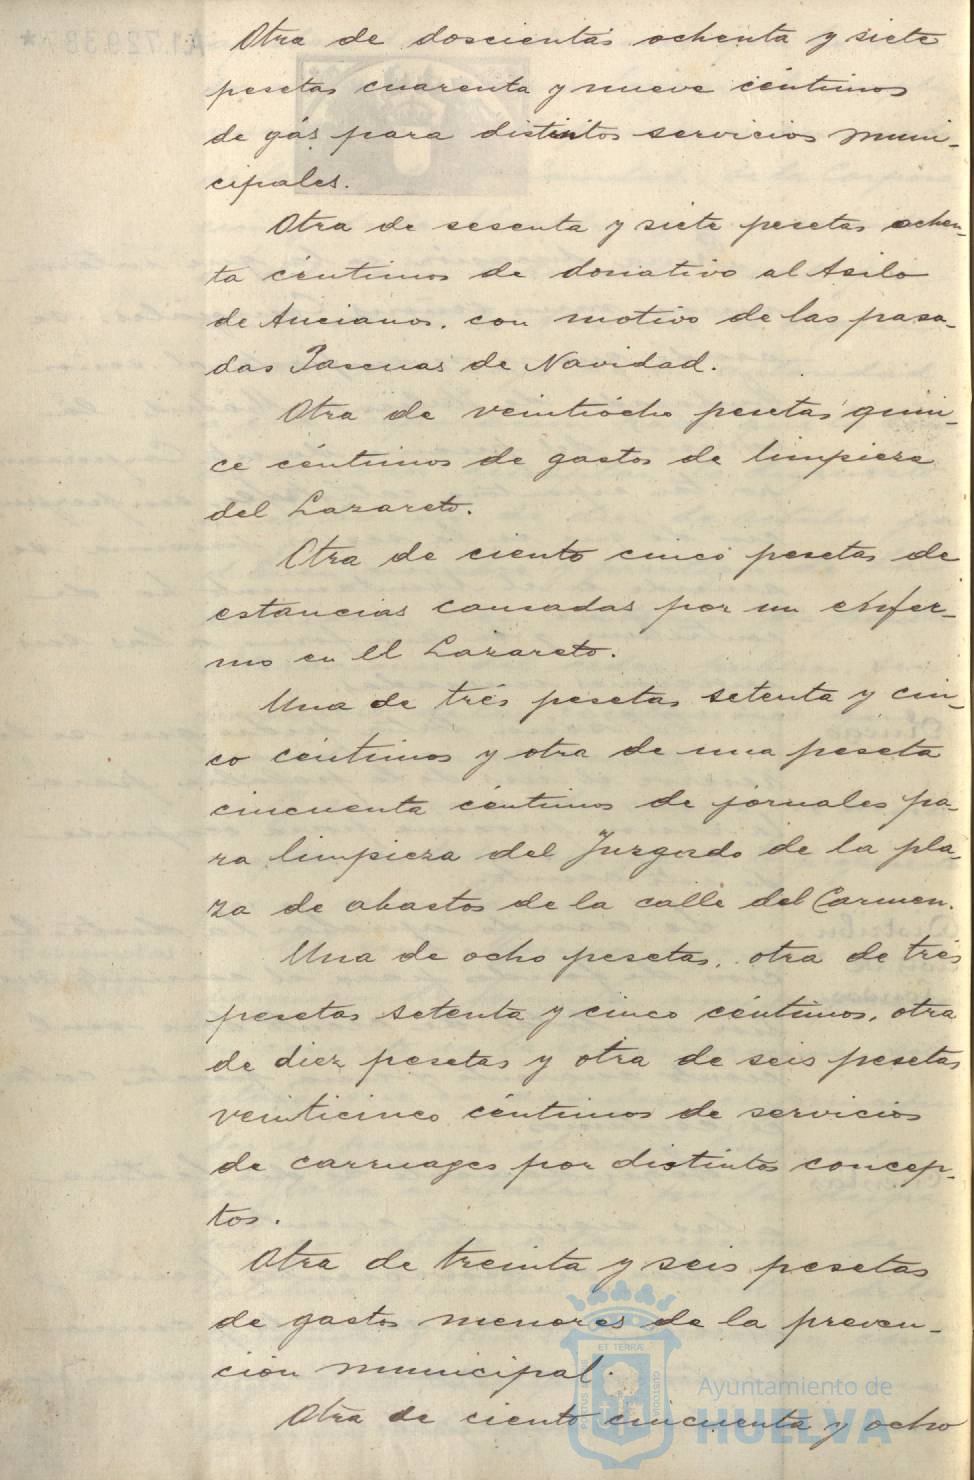 Otra de doscientas ochenta y siete
pesetas cuarenta y nueve céntimos
de gás para distintos servicios muni-
cipales.
Otra de sesenta y siete pesetas ochen-
ta céntimos de donativo al Asilo
de Ancianos. con motivo de las pasa-
das Pascuas de Navidad.
Otra de veintiocho pesetas quin-
ce céntimos de gastos de limpieza
del Lazareto.
Otra de ciento cinco pesetas de
estancias causadas por un enfer-
mo en el Lazareto.
Una de trés pesetas setenta y cin-
co céntimos y otra de una peseta
cincuenta céntimos de jornales pa-
ra limpieza del Juzgado de la pla-
za de abastos de la calle del Carmen.
Una de ocho pesetas, otra de tres
pesetas setenta y cinco céntimos, otra
de diez pesetas y otra de seis pesetas
veinticinco céntimos de servicios
de carruages por distintos concep-
tos.
Otra de treinta y seis pesetas
de gastos menores de la preven-
ción municipal.
Otra de ciento cincuenta y ocho
ET TERRÆ
Ayuntamiento de
HUELVA